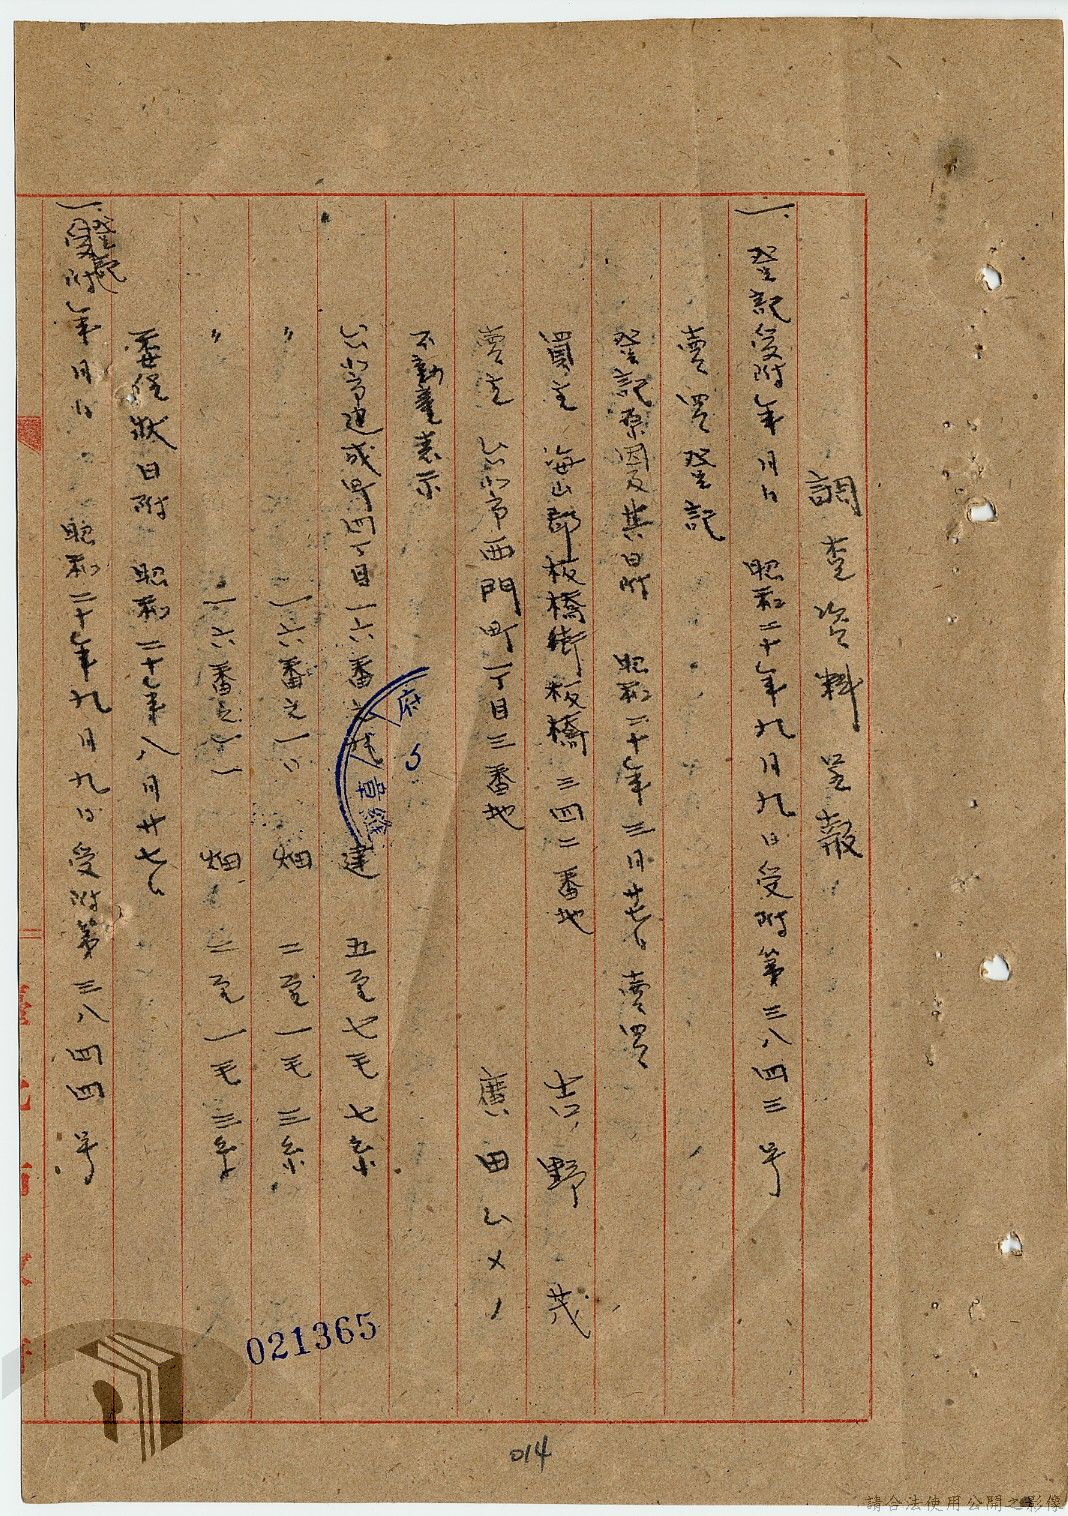 調查資料呈報
一、登記受附年月日 昭和二十年九月九日受附第三八四三号
賣買登記
登記原因及其日附 昭和二十年三月廿七日 賣買
買主 海山郡板橋街板橋三四二番地 吉野 茂
賣主 台北市西門町一丁目三番地 廣田ムメノ
不動產表示
台北市建成町四丁目一六番 建 五厘七毛七糸
〃 一六番之一 畑 二厘一毛三糸
〃 一六番之一一 畑 二厘一毛三糸
委任狀日附 昭和二十年八月廿七日
一、登記受附年月日 昭和二十年九月九日受附第三八四四号
021365
014
請合法使用公開之影像